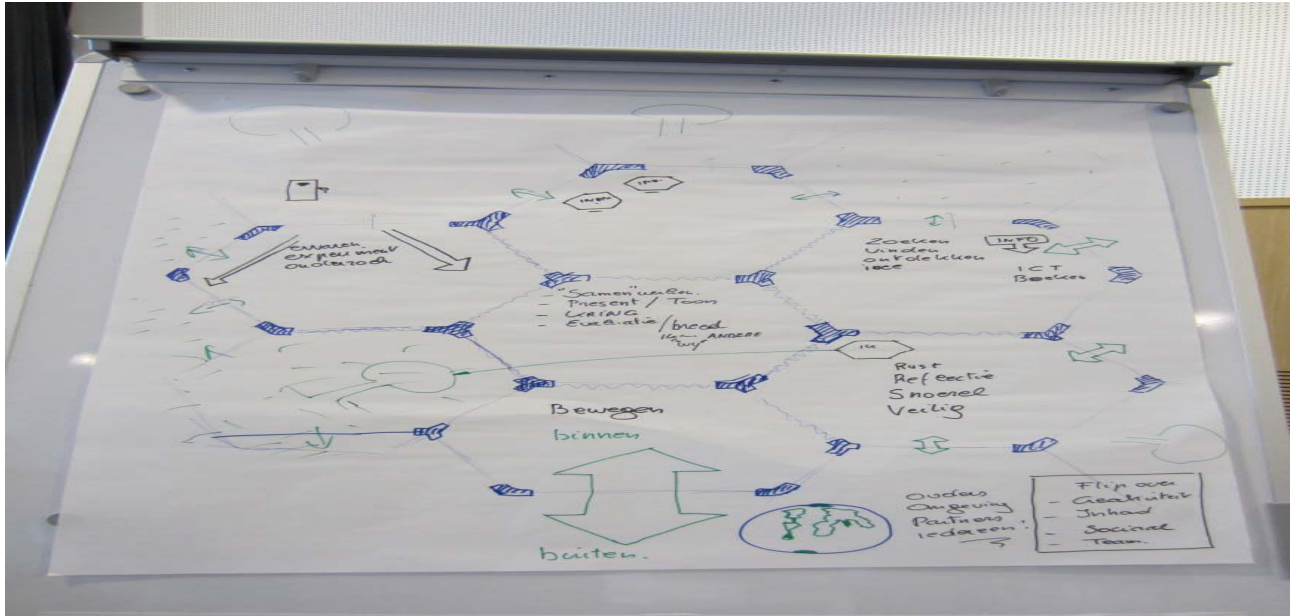 Ervaren
experiment
onderzoek
INFO
Zoeken
vinden
ontdekken
ICT
Boeken
- "Samen"werken.
- Present / Toon
- KRING
- Evaluatie / breed
ANDERE
IK
Rust
Reflectie
Snoezel
Veilig
Bewegen
binnen
buiten.
Ouders
Omgeving
Partners
iedereen!
Flip over
- Creativiteit
- Inhoud
- Sociaal
- Team.